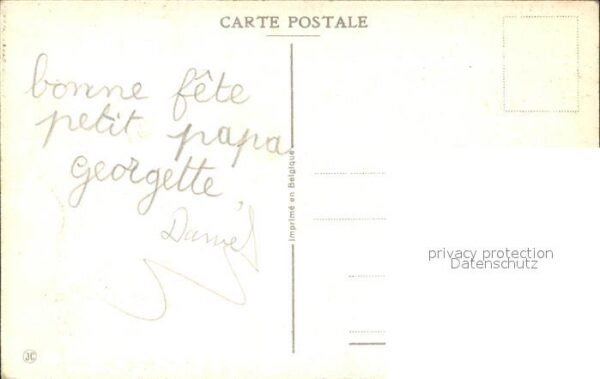 CARTE POSTALE
bonne fête
petit papa
georgette,
Daniel
Imprimé en Belgique
privacy protection
Datenschutz
JC